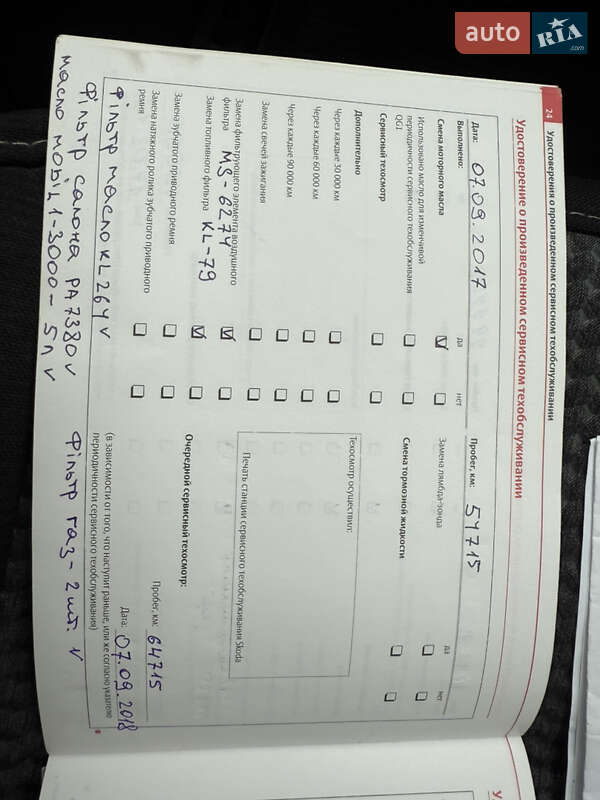 auto RIA .com
24 Удостоверения о произведенном сервисном техобслуживании
Удостоверение о произведенном сервисном техобслуживании
Дата: 07.09.2017
Пробег, км: 54715
Выполнено:
да нет
да нет
Смена моторного масла
Использовано масло для изменчивой периодичности сервисного техобслуживания QGI
Сервисный техосмотр
Дополнительно
Через каждые 30 000 км
Через каждые 60 000 км
Через каждые 90 000 км
Замена свечей зажигания
Замена фильтрующего элемента воздушного
фильтра MS-6274
Замена топливного фильтра KL-79
Замена зубчатого приводного ремня
Замена натяжного ролика зубчатого приводного
ремня
Замена лямбда-зонда
Смена тормозной жидкости
Техосмотр осуществил:
Печать станции сервисного техобслуживания Skoda
Очередной сервисный техосмотр:
Пробег, км: 64715
Дата: 07.09.2018
(в зависимости от того, что наступит раньше, или же согласно указателю
периодичности сервисного техобслуживания)
Фільтр масло KL 264 v
Фільтр салона PA 7380 v
Фільтр газ - 2 шт. v
масло mobil 1-3000 - 5л v